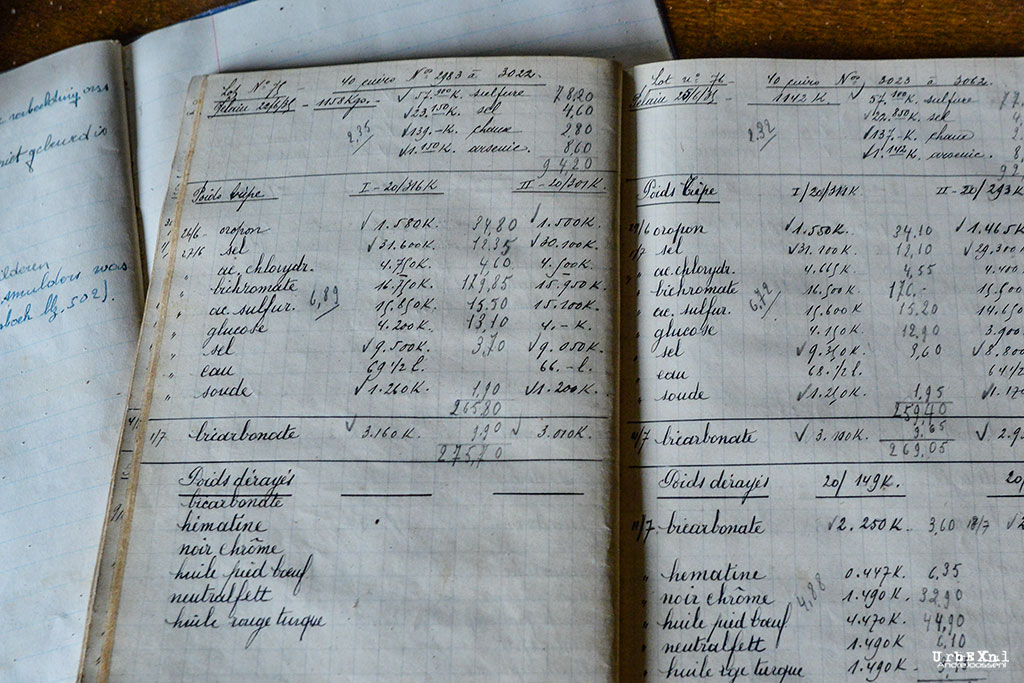 niet gekeurd is
smulders was
blz. 502].
Lot N° 75 40 cuirs Nos 2983 à 3022.
1153 Kgs. 57. K. sulfure 78,20
23.150 K. sel 4,60
2,35 139.-K. chaux 2,80
1.150 K. arsenic 8,60
94,20
Poids tripe I-20/316 K II-20/301 K.
24/6 oropon 1.580 K. 34,80 1.500 K.
27/6 sel 31.600 K. 12,35 30.100 K.
" ac. chlorydr. 4.750 K. 4,60 4.500 K.
" bichromate 6,89 16.750 K. 179,85 15.950 K.
" ac. sulfur. 15.850 K. 15,50 15.100 K.
" glucose 4.200 K. 13,10 4.-K.
" sel 9.500 K. 3,70 9.050 K.
" eau 69 1/2 l. 66.-l.
" soude 1.260 K. 1,90 1.200 K.
265,80
1/7 bicarbonate 3.160 K. 3.000 K.
275,70
Poids dérayés
bicarbonate
hématine
noir chrôme
huile pied bœuf
neutralfett
huile rouge turque
Lot n° 76 40 cuirs Nos 3023 à 3062.
1142 K 57. K. sulfure
22.850 K. sel
2,32 137.-K. chaux
1.142 K. arsenic
Poids tripe II-20/293 K
oropon 1.550 K. 34,10 1.465 K
sel 31.100 K. 12,10 29.300
ac. chlorydr. 4.665 K. 4,55 4.400
bichromate 6,72 16.500 K. 176.-
ac. sulfur. 15.600 K 15,20 14.650
glucose 4.150 K. 12,90 3.900
sel 9.350 K. 3,60 8.800
eau 68.1/2 l. 64 1/2
soude 1.250 K. 1,95
259,40
bicarbonate 3.100 K. 9,65
269,05
Poids dérayés 20/149 K.
11/7 bicarbonate 2.250 K. 3,60 12/7
" hematine 0.447 K. 6,35
" noir chrôme 4,88 1.490 K. 32,90
" huile pied bœuf 4.470 K. 44,90
" neutralfett 1.490 K 6,10
" huile rge turque 1.490 K-
UrbEXnl